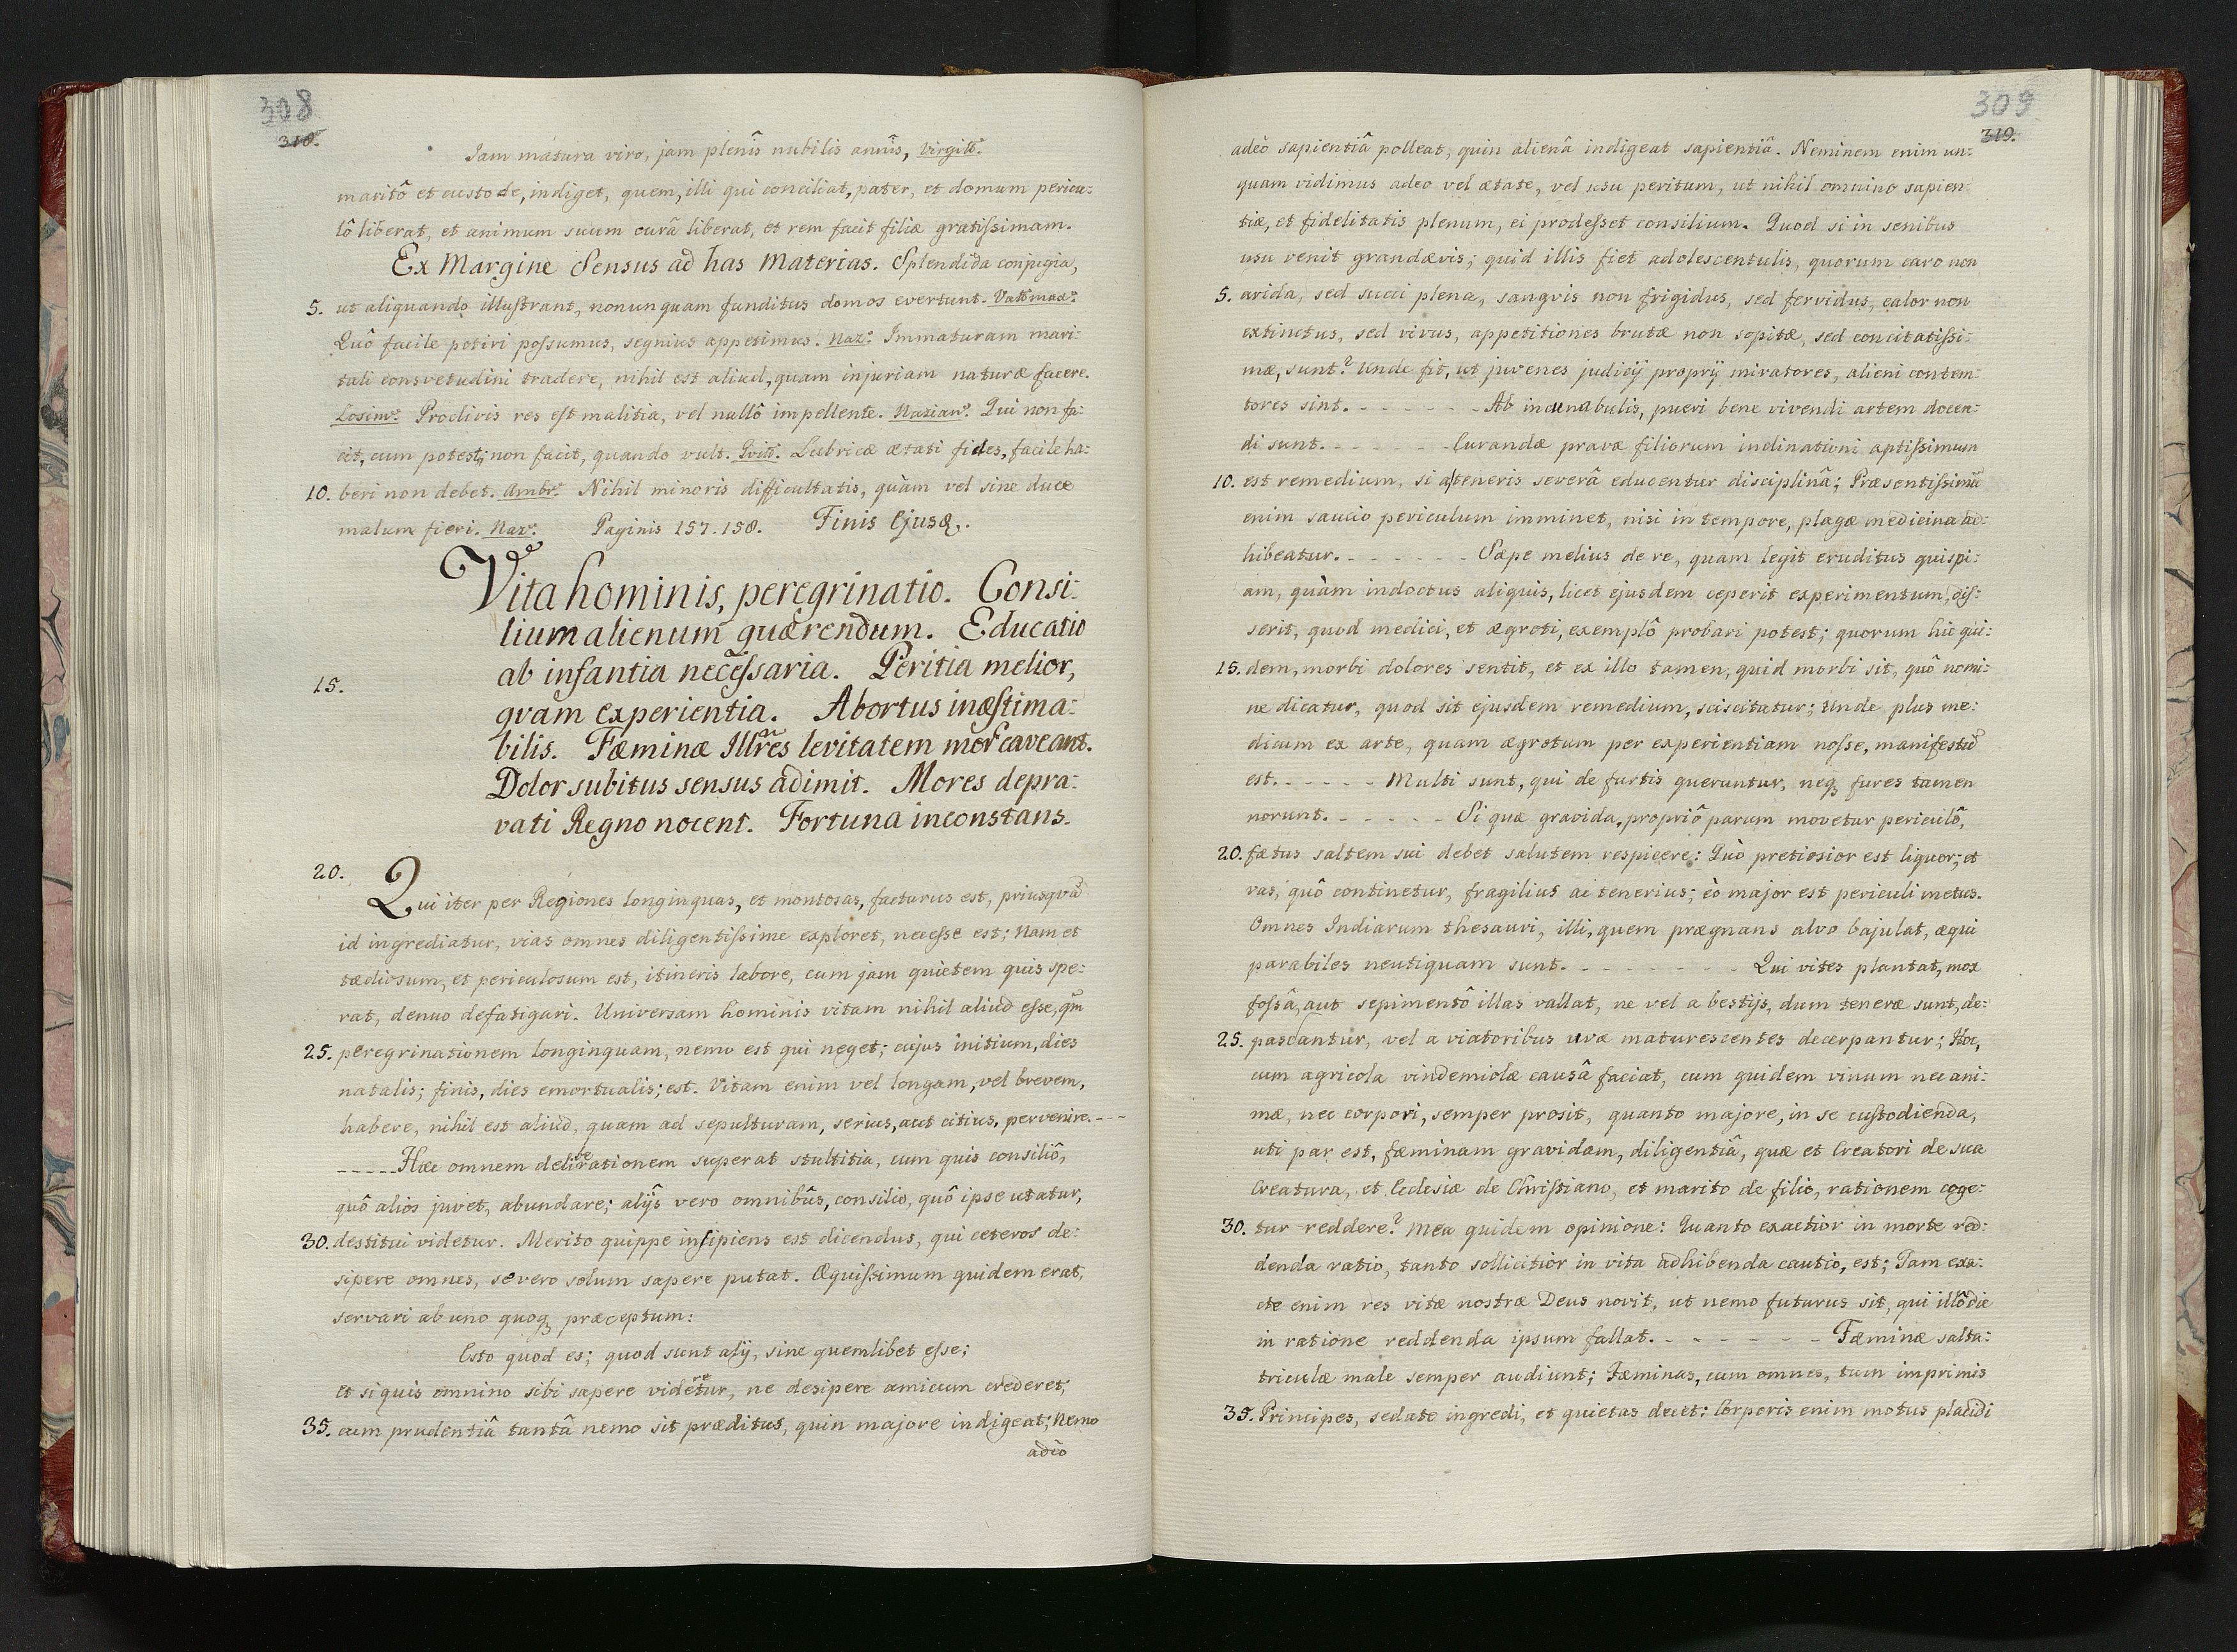 308
318.
Jam matura viro, jam plenîs nubilis annîs, Virgilˢ.
maritô et custode, indiget, quem, illi qui conciliat, pater, et domum pericu:
lô liberat, et animum suum curâ liberat, et rem facit filiæ gratiſsimam.
Ex Margine Sensus ad has Materias. Splendida conjugia,
5. ut aliquando illuſtrant, nonunquam funditus domos evertunt. Val: max:
Quô facile potiri poſsumus, segnius appetimus. Naz: Immaturam mari:
tali consvetudini tradere, nihil est aliud, quam injuriam naturæ facere.
Losim: Proclivis res eſt malitia, vel nullô impellente. Nazian: Qui non fa:
cit, cum potest; non facit, quando vult. Lubricæ ætati fides, facile ha:
10. beri non debet. Ambr: Nihil minoris difficultatis, quàm vel sine duce
malum fieri. Naz: Paginis 157. 158. Finis Ejusq,.
Vita hominis, peregrinatio. Consi:
lium alienum quærendum. Educatio
ab infantia neceſsaria. Peritia melior,
15.
qvam experientia. Abortus inæſtima:
bilis. Fæminæ Illres levitatem mor caveant.
Dolor subitus sensus adimit. Mores depra:
vati Regno nocent. Fortuna inconstans.
20.
Qui iter per Regiones longinquas, et montosas, facturus est, priusqvā
id ingrediatur, vias omnes diligentiſsime exploret, necesse est; Nam et
tædiosum, et periculosum est, itineris labore, cum jam quietem quis spe:
rat, denuo defatigari. Universam hominis vitam nihil aliud eſse, qm̄
25. peregrinationem longinquam, nemo est qui neget; cujus initium, dies
natalis; finis, dies emortualis; est. Vitam enim vel longam, vel brevem,
habere, nihil est aliud, quam ad sepulturam, serius, aut citius, pervenire. - - -
- - - - - Hæc omnem delirationem superat stultitia, cum quis consiliô,
quô alios juvet, abundare; alijs vero omnibûs, consilio, quô ipse utatur,
30. destitui videtur. Merito quippe insipiens est dicendus, qui ceteros de:
sipere omnes, se vero solum sapere putat. Æquiſsimum quidem erat,
servari ab uno quoq, præceptum:
Esto quod es; quod sunt alij, sine quemlibet eſse;
et si quis omnino sibi sapere videretur, ne desipere amicum crederet;
35. cum prudentiâ tantâ nemo sit præditus, quin majore indigeat; Nemo
adeò
309
319.
adeò sapientiâ polleat, quin alienâ indigeat sapientiâ. Neminem enim un:
quam vidimus adeo vel ætate, vel usu peritum, ut nihil omnino sapien:
tiæ, et fidelitatis plenum, ei prodeſset consilium. Quod si in senibus
usu venit grandævis; quid illis fiet adolescentulis, quorum caro non
5. arida, sed succi plena, sangvis non frigidus, sed fervidus, calor non
extinctus, sed vivus, appetitiones brutæ non sopitæ, sed concitatiſsi:
mæ, sunt? Unde fit, ut juvenes judicij proprij miratores, alieni contem:
tores sint. - - - - - - Ab incunabulis, pueri bene vivendi artem docen:
di sunt. - - - - - - Curandæ pravæ filiorum inclinationi aptiſsimum
10. est remedium, si a teneris severâ educentur disciplinâ; Præsentiſsimū
enim saucio periculum imminet, nisi in tempore, plagæ medicina ad:
hibeatur. - - - - - - Sæpe melius de re, quam legit eruditus quispi:
am, quàm indoctus aliquis, licet ejusdem ceperit experimentum, diſ:
serit, quod medici, et ægroti, exemplô probari potest; quorum hic qui:
15. dem, morbi dolores sentit, et ex illo tamen, quid morbi sit, quô nomi:
ne dicatur, quod sit ejusdem remedium, sciscitatur; Unde plus me:
dicum ex arte, quam ægrotum per experientiam noſse, manifestū
est. - - - - - Multi sunt, qui de furtis queruntur, neq, fures tamen
norunt. - - - - - Si quæ gravida, propriô parum movetur periculô,
20. fætus saltem sui debet salutem respicere: Quò pretiosior est liquor, et
vas, quô continetur, fragilius ac tenerius; eò major est periculi metus.
Omnes Indiarum thesauri, illi, quem prægnans alvo bajulat, æqui
parabiles neutiquam sunt. - - - - - - - Qui vites plantat, mox
foſsâ, aut sepimentô illas vallat, ne vel a bestijs, dum teneræ sunt, de:
25. pascantur, vel a viatoribus uvæ maturescentes decerpantur; Hoc,
cum agricola vindemiolæ causâ faciat, cum quidem vinum nec ani:
mæ, nec corpori, semper prosit, quanto majore, in se cuſtodienda,
uti par est, fæminam gravidam, diligentiâ, quæ et Creatori de sua
Creatura, et Ecclesiæ de Chriſtiano, et marito de filio, rationem coge:
30. tur reddere? Mea quidem opinione: Quanto exactior in morte red:
denda ratio, tanto sollicitior in vita adhibenda cautio, est; Tam exa:
cte enim res vitæ nostræ Deus novit, ut nemo futurus sit, qui illô die
in ratione reddenda ipsum fallat. - - - - - - Fæminæ salta:
triculæ male semper audiunt; Fæminas, cum omnes, tum imprimis
35. Principes, sedate ingredi, et quietas decet: Corporis enim motus placidi